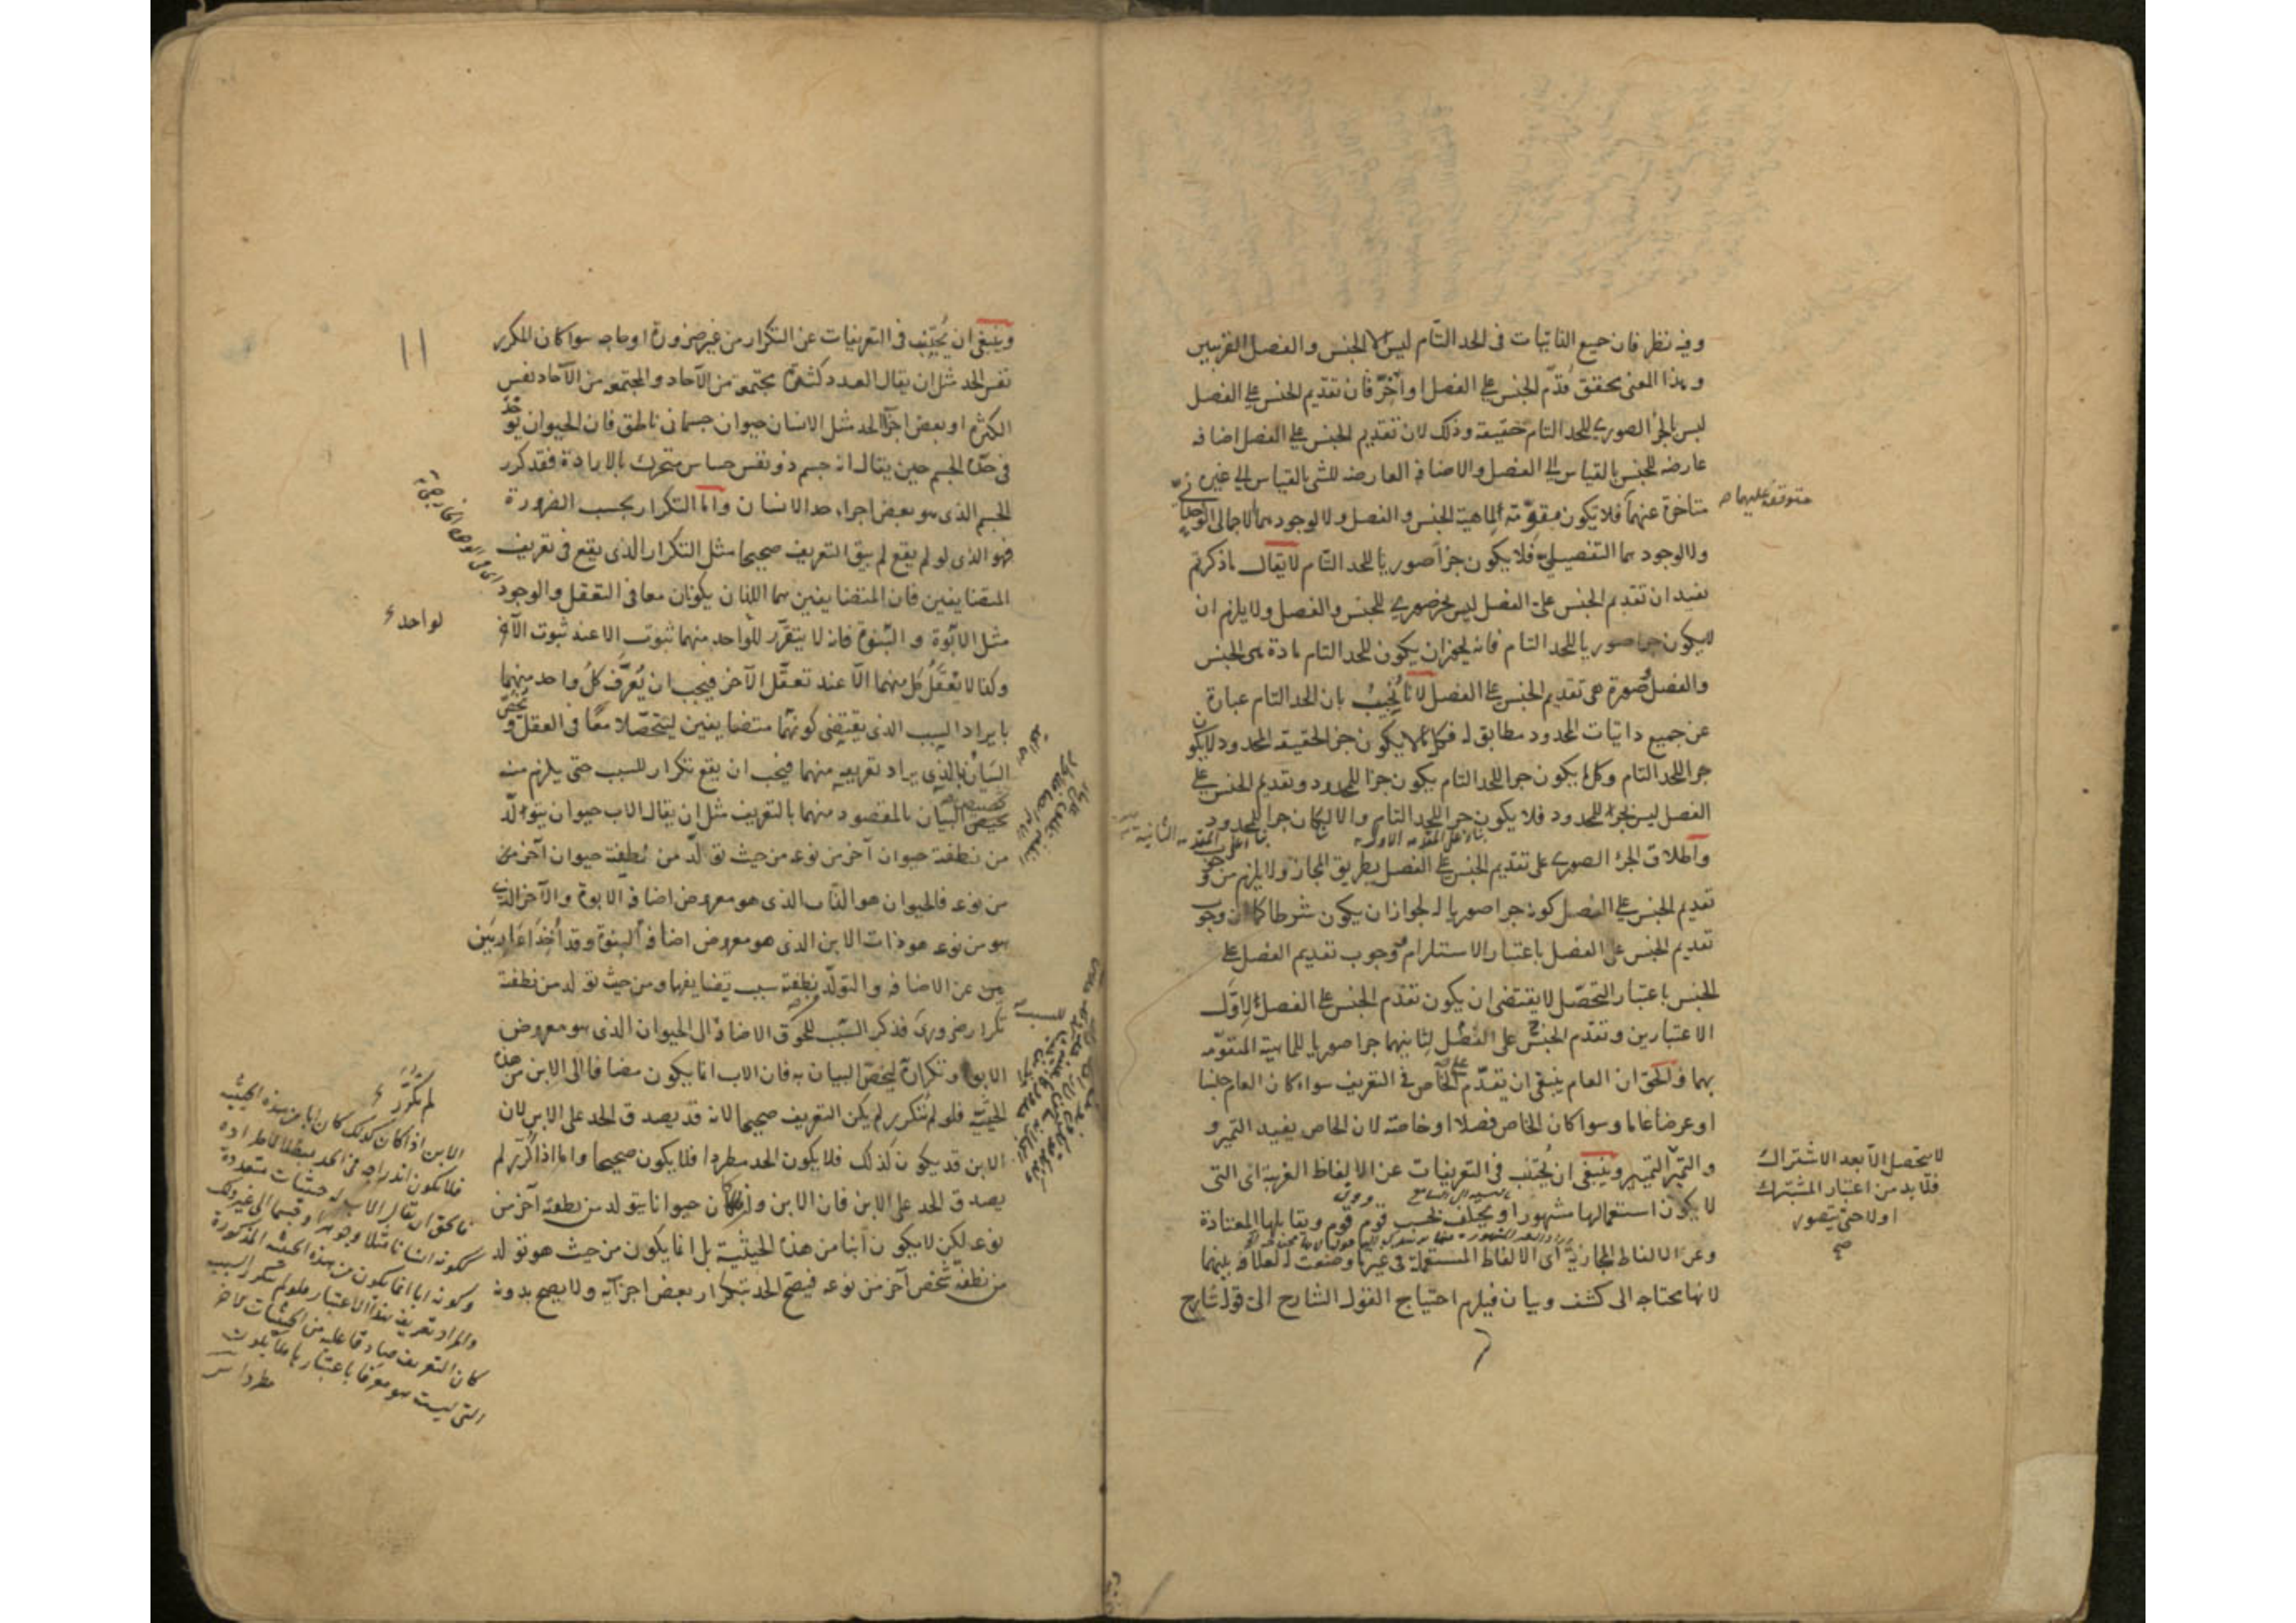 وفيه نظر فان جميع الذاتيات فى الحد التام ليس الا الجنس والفصل القريبين
وهذا المعنى يحقق قدّم الجنس على الفصل او أخّر فان تقديم الجنس على الفصل
ليس بالجزء الصورى للحد التام حقيقة وذلك لان تقديم الجنس على الفصل اضافة
عارضة للجنس بالقياس الى الفصل والاضافة العارضة للشئ بالقياس الى غيره
متاخرة عنهما فلا يكون مقوّمة لماهية الجنس والفصل ولا لوجودهما الاجمالى
متوقفة عليهما
ولا لوجودهما التفصيلى فلا يكون جزأ صوريا للحد التام لا يقال ما ذكرتم
يفيد ان تقديم الجنس على الفصل ليس بجزء صورى للجنس والفصل ولا يلزم ان
لا يكون جزا صوريا للحد التام فانه يجوز ان يكون للحد التام مادة هى الجنس
والفصل وصورة هى تقديم الجنس على الفصل لانا نُجيبُ بان الحد التام عبارة
عن جميع ذاتيات المحدود مطابق له فكل ما لا يكون جزا لحقيقة المحدود لا يكون
جزا للحد التام وكل ما يكون جزا للحد التام يكون جزا للمحدود وتقديم الجنس على
الفصل ليس بجزء للمحدود فلا يكون جزا للحد التام والا لكان جزا للمحدود
بناء على المقدمة الاولى
بناء على المقدمة الثانية
واطلاق الجزء الصورى على تقديم الجنس على الفصل بطريق المجاز ولا يلزم من وجوب
تقديم الجنس على الفصل كونه جزا صوريا له لجواز ان يكون شرطا كما ان وجوب
تقديم الجنس على الفصل باعتبار الاستلزام ووجوب تقديم الفصل على
الجنس باعتبار التحصّل لا يقتضى ان يكون تقدم الجنس على الفصل لاوّل
الاعتبارين وتقدم الجنس على الفصل لثانيهما جزا صوريا للماهية المتقومة
بهما والحق ان العام ينبغى ان يقدّم على الخاص فى التعريف سواء كان العام جنسا
او عرضا عاما وسوا كان الخاص فصلا او خاصة لان الخاص يفيد التميز و
والتميّز التمييز وينبغى ان يُجتنب فى التعريفات عن الالفاظ الغريبة اى التى
لا يتحصل الا بعد الاشتراك
فلا بد من اعتبار المشترك
اولا حتى يتصور
صح
لا يكون استعمالها مشهورا ويختلف بحسب قوم قوم ويقابلها المعتادة
وعن الالفاظ المجازية اى الالفاظ المستعملة فى غير ما وضعت له لعلاقة بينهما
لانها محتاجه الى كشف وبيان فيلزم احتياج القول الشارح الى قول شارح
١١
وينبغى ان يُجتنب فى التعريفات عن التكرار من غير ضرورة او حاجه سوا كان المكرر
نفس الحد مثل ان يقال العدد كثرة مجتمعة من الآحاد والمجتمعة من الآحاد نفس
الكثرة او بعض اجزاء الحد مثل الانسان حيوان جسمانى ناطق فان الحيوان يؤخذ
فى حدّه الجسم حين يقال انه جسم ذو نفس حساس متحرك بالارادة فقد كرر
الجسم الذى هو بعض اجزاء حد الانسان واما التكرار بحسب الضرورة
فهو الذى لو لم يقع لم يبق التعريف صحيحا مثل التكرار الذى يقع فى تعريف
المتضايفين فان المتضايفين هما اللذان يكونان معا فى التعقل والوجود
مثل الابوّة والبنوة فانه لا يتقرّر للواحد منهما ثبوت الا عند ثبوت الآخر
لواحد
وكذا لا يُعقل كل منهما الّا عند تعقّل الآخر فيجب ان يُعرَّف كلُ واحد منهما
بايراد السبب الذى يقتضى كونهما متضايفين ليتحصّلا معًا فى العقل و
البيان بالذى يراد تعريفه منهما فيجب ان يقع تكرار للسبب حتى يلزم منه
تخصيص البيان بالمقصود منهما بالتعريف مثل ان يقال الاب حيوان يتولّد
من نطفته حيوان آخر من نوعه من حيث تولّد من نطفته حيوان آخر من
من نوعه فالحيوان هو الذات الذى هو معروض اضافة الابوة والآخر الذى
هو من نوعه هو ذات الابن الذى هو معروض اضافة البنوة وقد أُخذا عاريَين
عن الاضافة والتولّد بنطفته سبب تضايفها ومن حيث تولد من نطفته
تكرار ضرورى فذكر السبب للحوق الاضافة الى الحيوان الذى هو معروض
الابوة وتكراره ليخصّ البيان به فان الاب انما يكون مضافا الى الابن من هذه
الحيثية فلو لم تُكرر لم يكن التعريف صحيحا لانه قد يصدق الحد على الابن لان
الابن قد يكون كذلك فلا يكون الحد مطردا فلا يكون صحيحا واما اذا كُرّر لم
يصدق الحد على الابن فان الابن وان كان حيوانا يتولد من نطفته آخر من
نوعه لكن لا يكون أبنا من هذه الحيثية بل انما يكون من حيث هو تولد
من نطفة شخص آخر من نوعه فيصح الحد بتكرار بعض اجزائه ولا يصح بدونه
لم تكرر
الابن اذا كان كذلك كان ابا من هذه الحيثية
فلا يكون اندراجه فى الحد مبطلا لاطراده
فالحق ان يقال الاب له حيثيات متعددة
ككونه انسانا مثلا وجوهرا وجسما الى غير ذلك
وكونه ابا انما يكون من هذه الحيثية المذكورة
والمراد تعريفه بهذا الاعتبار فلو لم يتكرر السبب
كان التعريف صادقا عليه من الحيثيات الاخر
التى ليست هو معرفا باعتبارها فلا يكون
مطردا